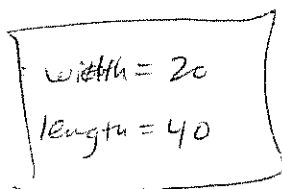 width = 20
length = 40